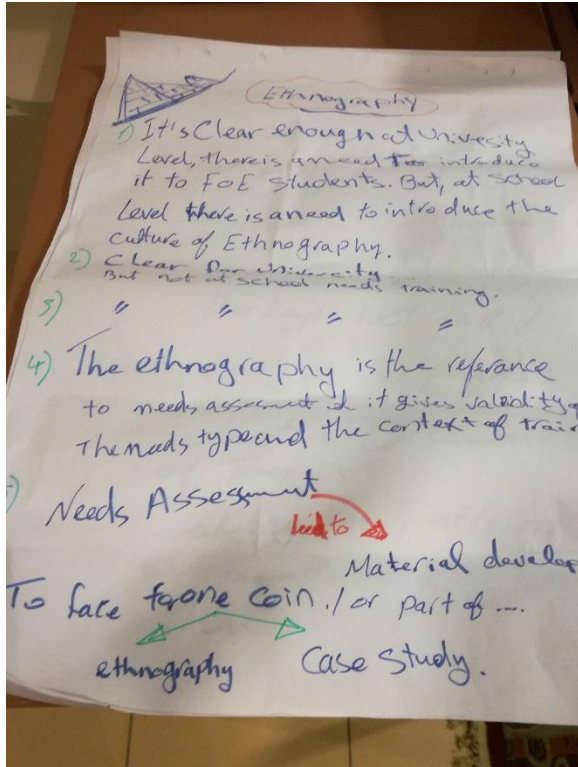 Ethnography
1) It's Clear enough at Univesity
Level, there is a need to introduce
it to FOE students. But, at school
Level there is a need to introduce the
culture of Ethnography.
2) Clear University
But not at school needs training.
3) " " " "
4) The ethnography is the referance
to needs assesment it gives validity
The needs type and the context of train
Needs Assessment
lead to
Material develop
To face for one coin. / or part of ....
ethnography Case Study.